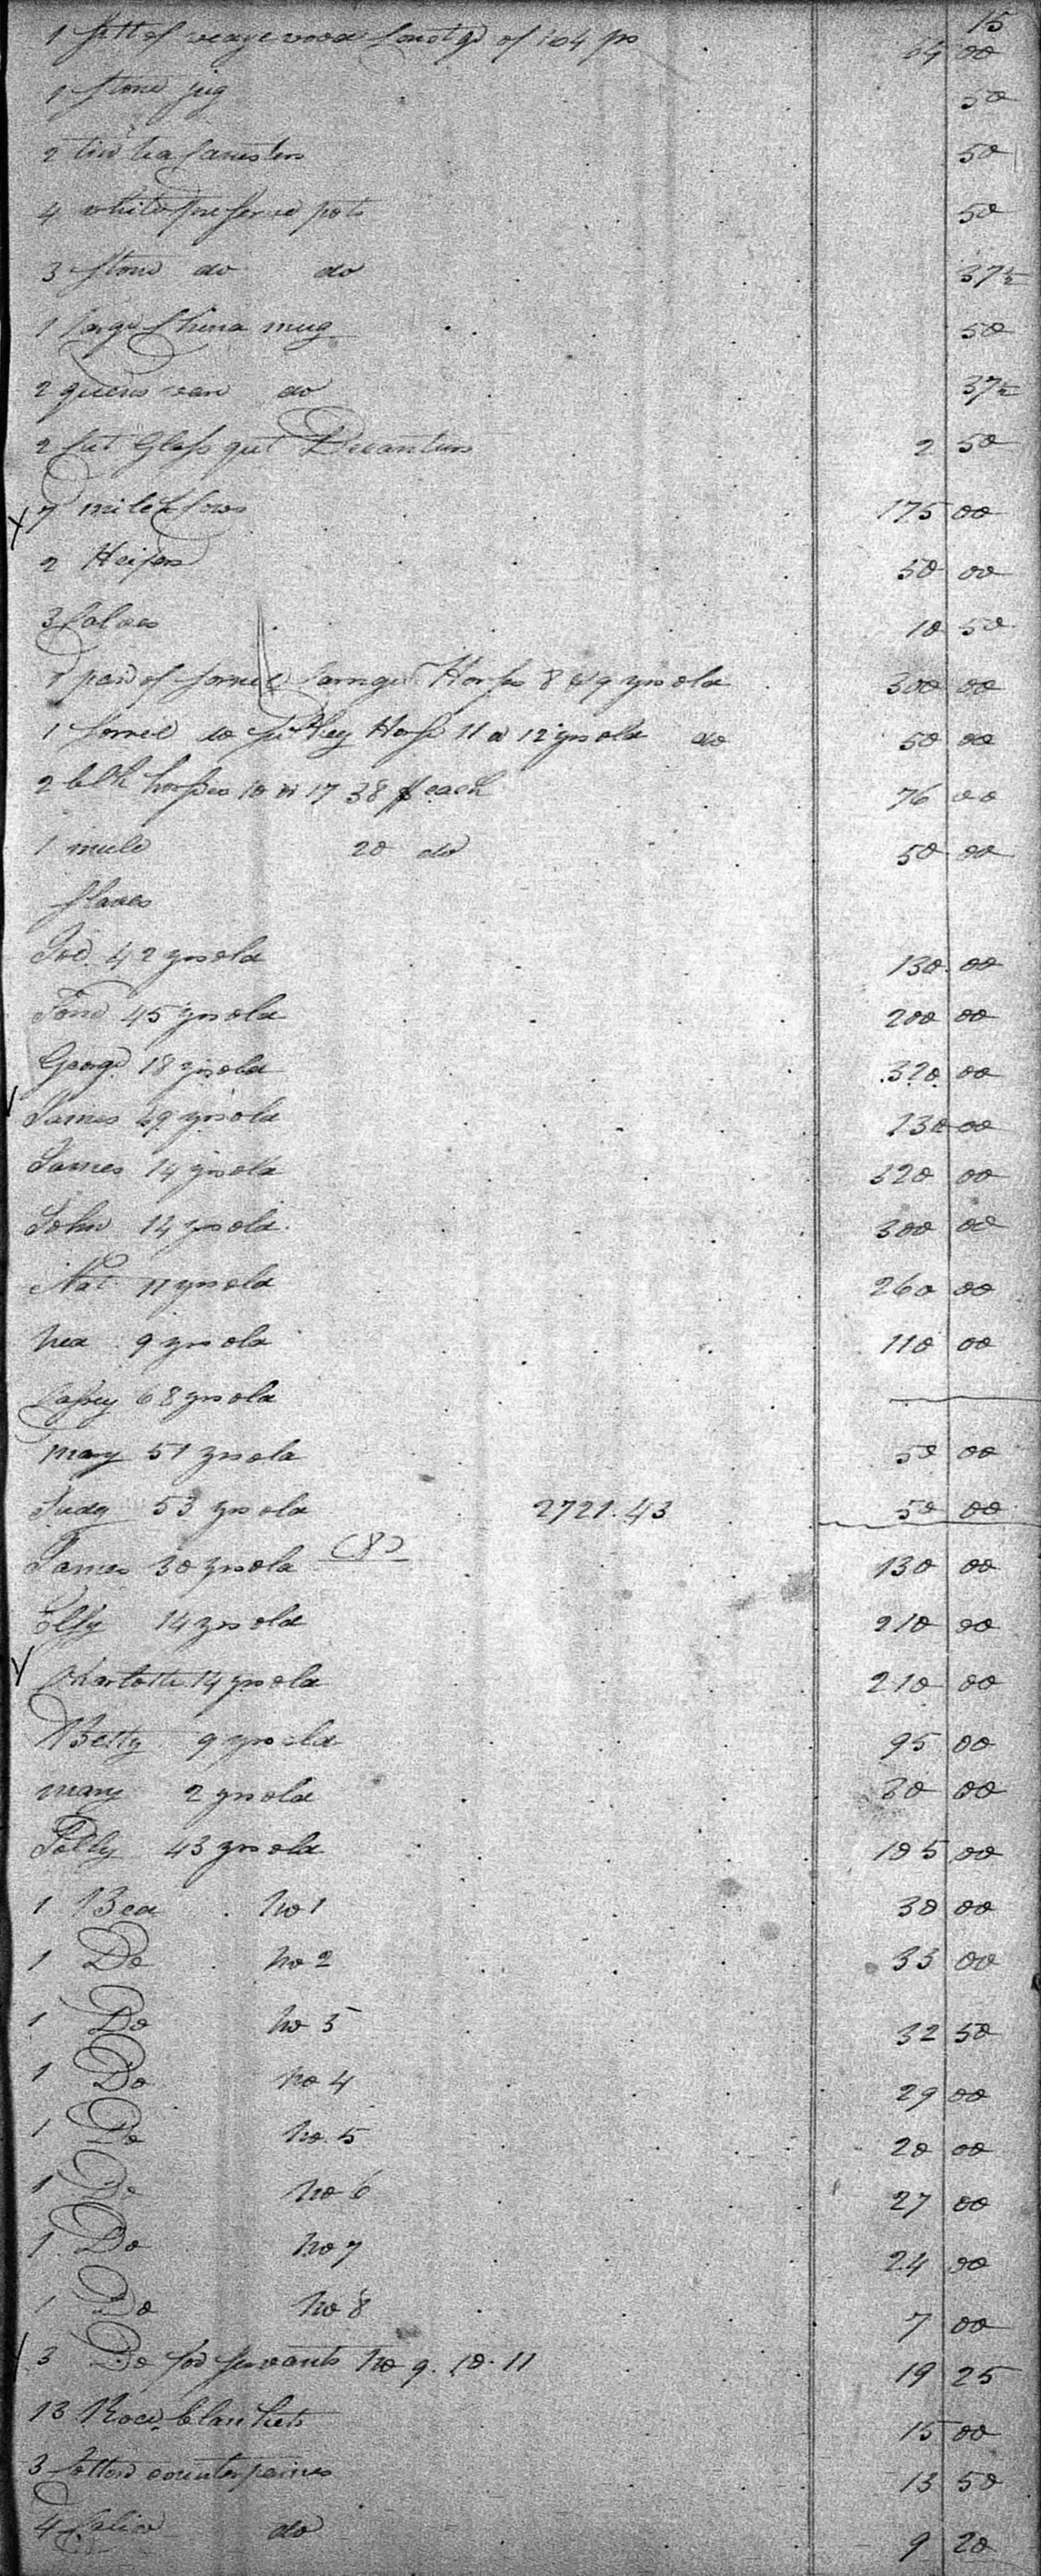 15
1 Sett of wedge wood Consistg of 104 ps 64 00
1 Stone jug 50
2 tin tea Canisters 50
4 white preserve pots 50
3 Stone do do 37½
1 large China mug 50
2 queens ware do 37½
2 Cut Glass qut Decanters 2 50
7 milch Cows 175 00
2 Heifers 50 00
3 Calves 10 50
1 pair of Sorrel Carriage Horses 8 & 9 yrs old 300 00
1 Sorrel do Horse 11 a 12 yrs old do 50 00
2 blk horses 16 a 17 38 $ each 76 00
1 mule 20 do 50 00
Slaves
Joe 42 yrs old 130 00
45 yrs old 200 00
George 18 yrs old 320 00
James 29 yrs old 230 00
James 14 yrs old 320 00
John 14 yrs old 300 00
Nat 11 yrs old 260 00
Ned 9 yrs old 110 00
68 yrs old
mary 51 yrs old 50 00
Judy 53 yrs old 2721.43 50 00
(8)
James 30 yrs old 130 00
14 yrs old 210 00
Charlotte 14 yrs old 210 00
Betty 9 yrs old 95 00
mary 2 yrs old 80 00
Polly 43 yrs old 105 00
1 Bed No 1 30 00
1 Do No 2 33 00
1 Do No 3 32 50
1 Do No 4 29 00
1 Do No. 5 20 00
1 Do No 6 27 00
1 Do No 7 24 00
1 Do No 8 7 00
3 Do for Servants No 9. 10. 11 19 25
13 Rose blankets 15 00
3 Cotton counterpaines 13 50
4 Calico do 9 20